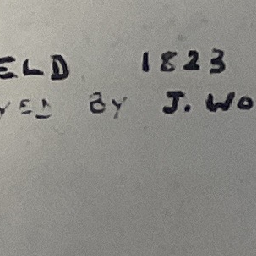 ELD 1823
YED BY J. WO